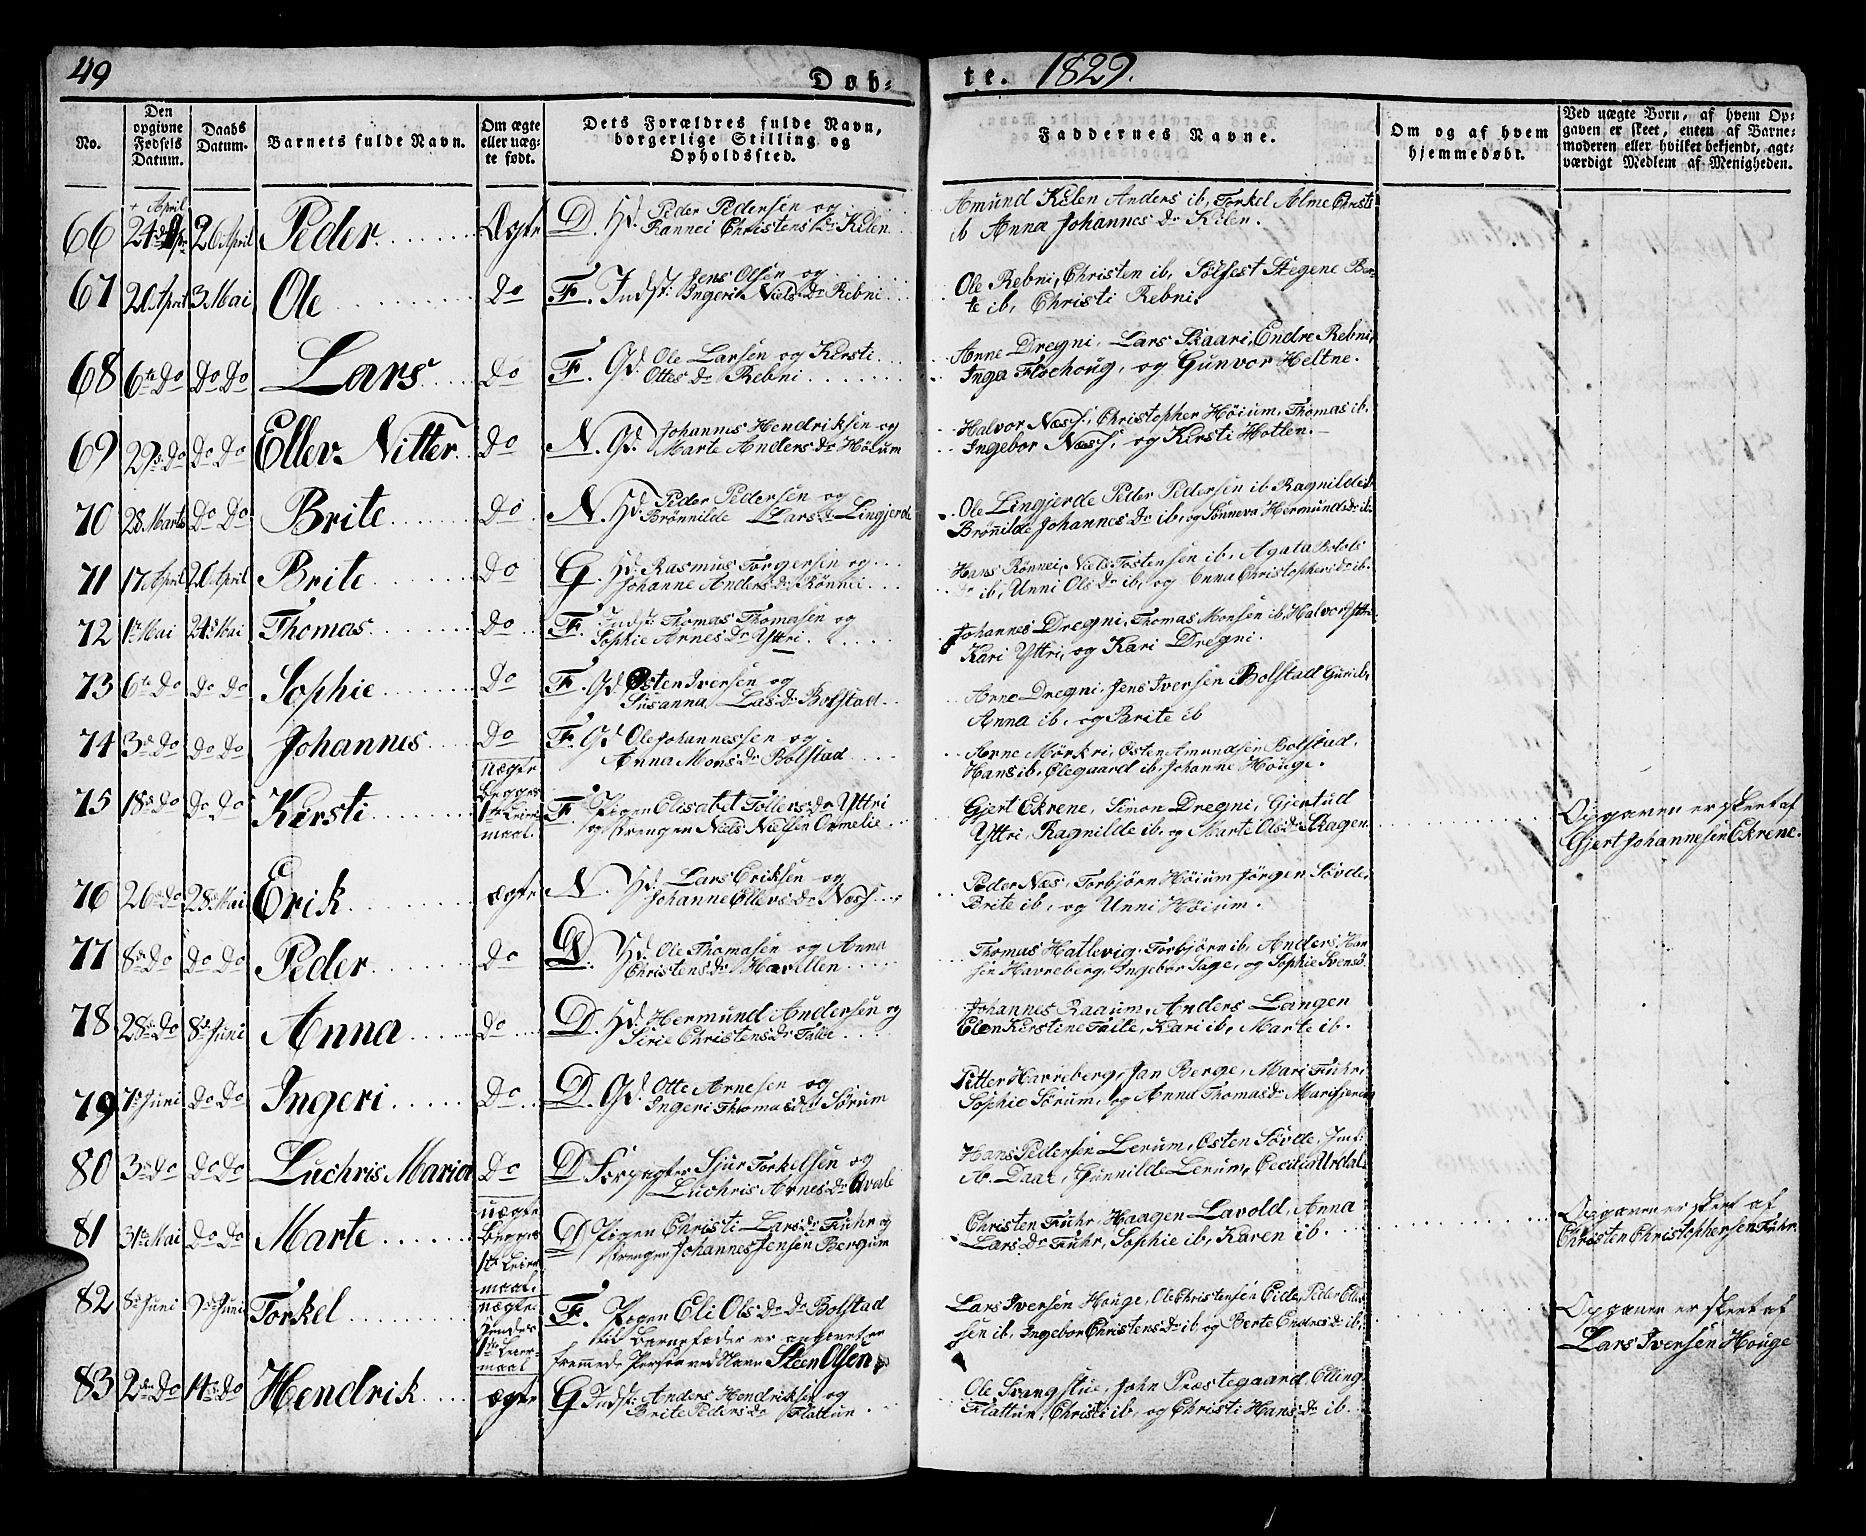 49
Døb-
te. 1829.
No.
Den opgivne Fødsels Datum.
Daabs Datum.
Barnets fulde Navn.
Om ægte eller uægte født.
Dets Forældres fulde Navn, borgerlige Stilling og Opholdssted.
Faddernes Navne.
Om og af hvem hjemmedøbt.
Ved uægte Børn, af hvem Opgaven er skeet, enten af Barnemoderen eller hvilket bekjendt, agtværdigt Medlem af Menigheden.
66 26 April Peder Ægte D. Hd. Peder Pedersen og
Christens Dr Kilen
Amund Kilen Anders ib, Torkel Alme Christi
ib Anna Johannes Dr Kilen.
67 20 April 3 Mai Ole Do F. Indst: Jens Olsen og
Ingeri Niels Dr Rebni
Ole Rebni, Christen ib, Sølfest Stegene Ben-
te ib, Christi Rebni.
68 6te Do Do Do Lars Do F. Gd. Ole Larsen og Kirsti
Ottes Dr Rebni
Arne Dregni, Lars Skaari, Endre Rebni,
Inga Flohoug, og Gunvor Heltne.
69 29 Do Do Do Ellev Nitter Do N. Gd. Johannes Hendriksen og
Marte Anders Dr Höium
Halvor Næss, Christopher Höium, Thomas ib.
Ingebor Næss, og Kirsti Hotlen.
70 28 Marts Do Do Brite Do N. Hd. Peder Pedersen og
Brönnilde Lars Dr Lingjerde
Ole Lingjerde Peder Pedersen ib Ragnilde ib
Brönilde Johannes Dr ib, og Sönneva Hermunds Dr ib.
71 17 April 20 April Brite Do G. Hd. Rasmus Torgersen og
Johanne Anders Dr Rönnei
Hans Rönnei, Niels Tostensen ib, Agata
ib, Unni Ols Dr ib, og Anna Christophers Dr ib.
72 1ste Mai 24 Mai Thomas Do F. Indst: Thomas Thomasen og
Sophie Arnes Dr Yttri
Johannes Dregni, Thomas Monsen ib, Halvor Yttri
Kari Yttri, og Kari Dregni.
73 6te Do Do Do Sophie Do F. Gd Østen Iversen og
Susanna Lars Dr Bolstad
Arne Dregni, Jens Iversen Bolstad Guri ib,
Anna ib, og Brite ib
74 3 Do Do Do Johannes Do F. Gd Ole Johannessen og
Anna Mons Dr Bolstad
Arne Mörkri, Østen Amundsen Bolstad,
Hans ib, Olegaard ib, Johanne Houge.
75 18 Do Do Do Kirsti uægte
Begges
1ste Leier-
maal.
F Pigen Elisabet Tollevs Dr Yttri
og Drengen Niels Nielsen Ormelie
Gjert Ekrene, Simon Dregni, Gjertud
Yttri, Ragnilde ib, og Marte Ols Dr Skagen
Opgaven er skeet af
Gjert Johannesen Ekrene.
76 26 Do 28 Mai Erik ægte N. Hd. Lars Eriksen og
Johanne Ellevs Dr Næss
Peder Næs, Torbjörn Höium Jörgen Sövde,
Brite ib, og Unni Höium.
77 8 Do Do Do Peder Do D. Hd. Ole Thomasen og Anna
Christens Dr Havellen
Thomas Hatlevig, Torbjörn ib, Anders Han
sen Havreberg, Ingebor Sage, og Sophie Svensö
78 28 Do 8 Juni Anna Do D. Hd. Hermund Andersen og
Sirie Christens Dr Talle
Johannes Raaum, Anders Langen
Elen Kirstine Talle, Kari ib, Marte ib.
79 1 Juni Do Do Ingeri Do D. Gd. Otte Arnesen og
Ingeri Thomas Dr Sörum
Petter Havreberg, Jan Berge, Mari Fuhr,
Sophie Sörum, og Anna Thomas Dr Marifjeren
80 3 Do Do Do Luchris Maria Do D Forpagter Sjur Torkelsen og
Luchris Arnes Dr Qvale
Hans Pedersen Lerum, Østen Sövde,
A. Daae, Gunnilde Lerum, Cecilia Urdal.
81 31te Mai Do Do Marte uægte
Begges
1ste Leier-
maal.
D Pigen Christi Lars Dr Fuhr og
Drengen Johannes Jensen Bergum
Christen Fuhr, Haagen Lavold, Anna
Lars Dr Fuhr, Sophie ib, Karen ib.
Opgaven er skeet af
Christen Christophersen Fuhr.
82 8 Juni 9 Juni Torkel uægte
Hendes
1ste Leier-
maal
F. Pigen Eli Ols Dr Bolstad
til Barnefader er angivet en
fremmede Person ved Navn Steen Olsen
Lars Iversen Houge, Ole Christensen Eide, Peder
sen ib, Ingebor Christens Dr ib og Berte Endres Dr ib.
Opgaven er skeet af
Lars Iversen Houge
83 2 Do 14 Do Hendrik ægte G Indst: Anders Hendriksen og
Brite Peders Dr Flattun
Ole Svangstue, John Præstegaard, Elling
Flattun, Christi ib, og Christi Hans Dr ib.